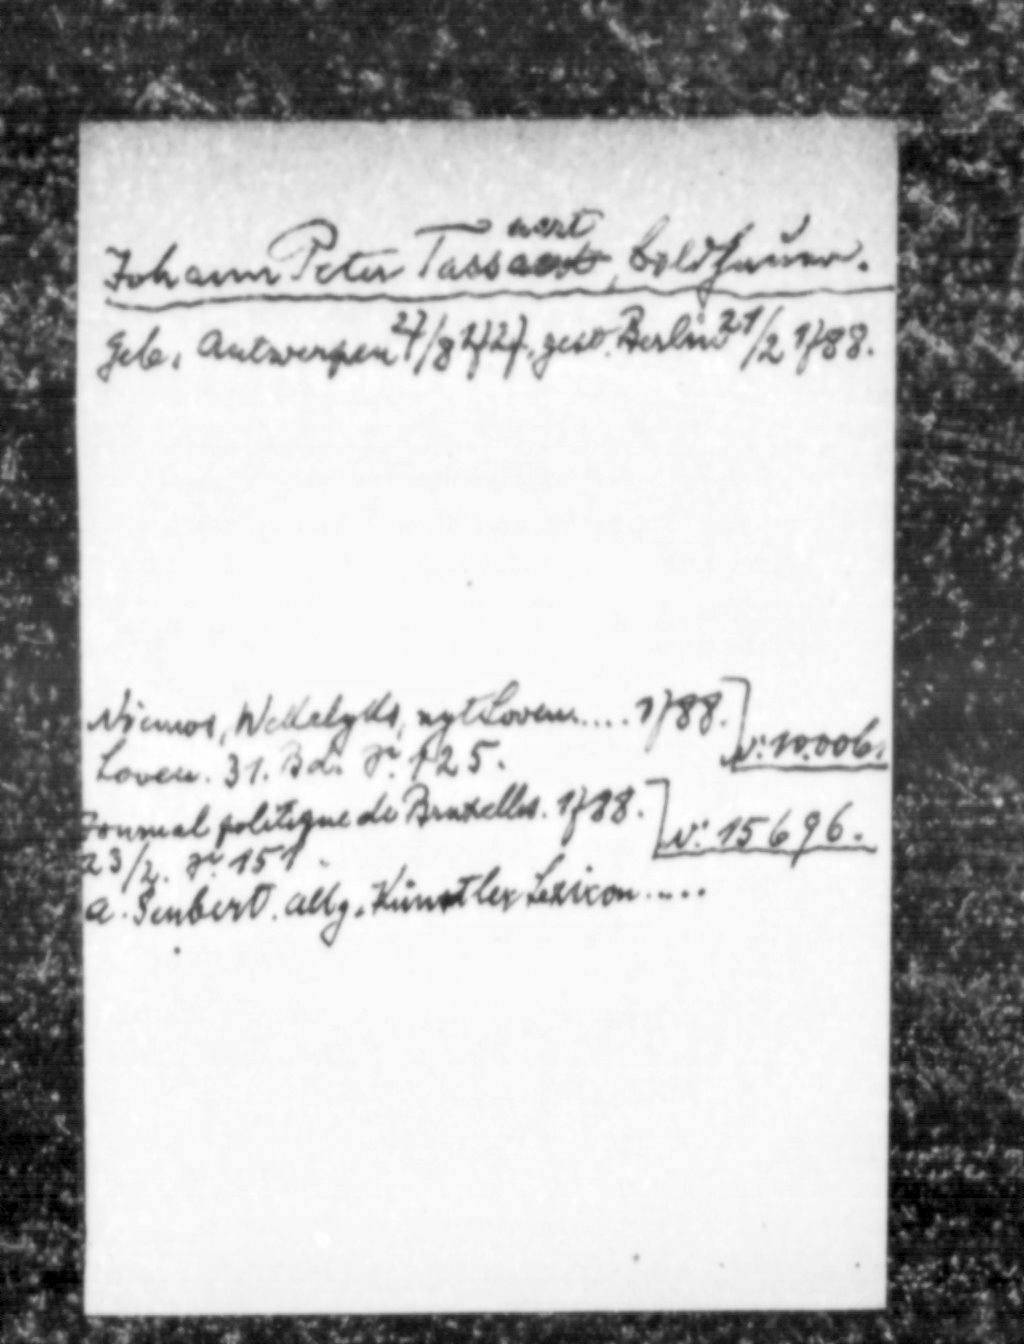 Johann Peter Tassaert, Boldhauer.
Geb. Antwerpen 27/8 1727, gest. Berlin 21/2 1788.
Niemos, Wekelyks, uyt Loven.... 1788.
Loven. 31. Bd. 125. N: 10.006.
Journal politique de Bruxelles. 1788.
23/2. 151. N: 15696.
A. Seubert. Allg. Künstler Lexikon.....